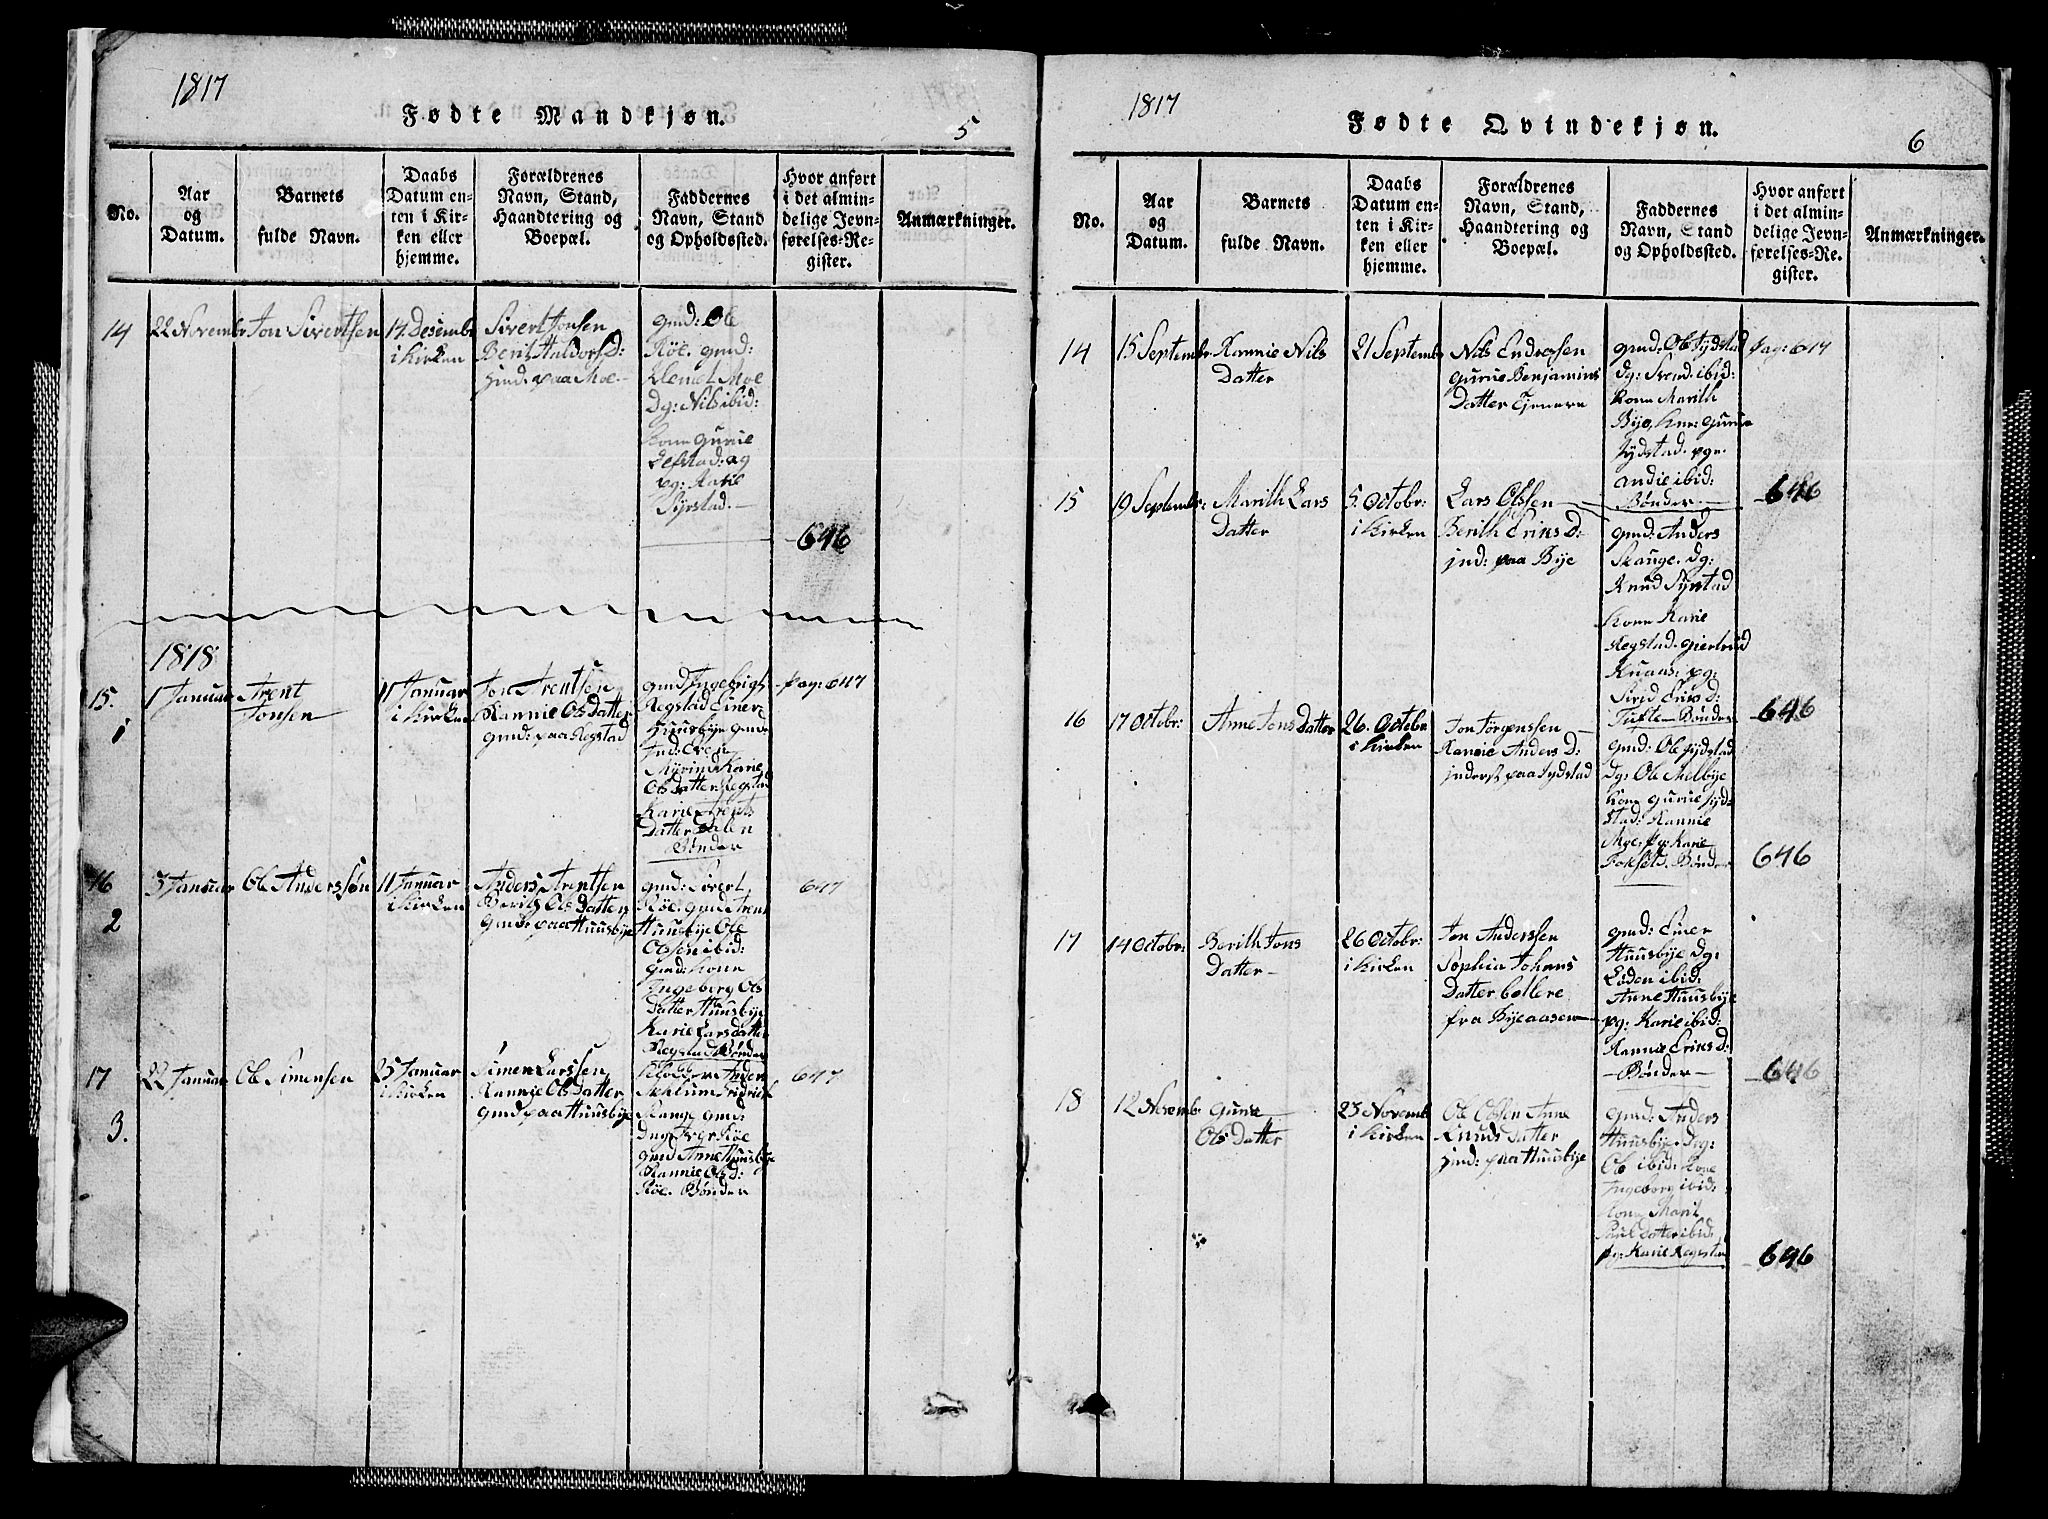 1817
Fødte Mandkjøn.
5
No.
Aar
og
Datum.
Barnets
fulde Navn.
Daabs
Datum en-
ten i Kir-
ken eller
hjemme.
Forældrenes
Navn, Stand,
Haandtering og
Boepæl.
Faddernes
Navn, Stand
og Opholdssted.
Hvor anført
i det almin-
delige Jevn-
førelses-Re-
gister.
Anmærkninger.
14
22 Novembr
Jon Sivertsen
14 Desembr
i Kirken
Sivert Jonsen
Berit Haldorsd:
jnd: paa Moe.
gmd: Ole
Röe. gmd:
Moe
Dg: Nils ibid:
Kone Gurue
pg: Karie
Syrstad.
646
1818
15.
1
1 Januar
Arent
Jonsen
11 Januar
i Kirken
Jon Arentsen
Rannie Olsdatter
gmd: paa Regstad
gmd Ingebrigt
Regstad Einer
Huusbye gmd:
Jnd: Sven
Myrind Karie
Olsdatter Regstad
Karie Arents
Datter Dalen
Bönder
pag: 647
16
2
3 Januar
Ole Anderssön
11 Januar
i Kirken
Anders Arentsen
Berith Olsdatter
gmd: paa Huusbye
gmd: Sivert
Röe. gmd Arent
Huusbye Ole
Olssen ibid:
gmd: Kone
Ingeborg Ols
Datter Huusbye
Karie Larsdatter
Regstad Bönder
647
17
3.
22 Januar
Ole Simensen
25 Januar
i Kirken
Simen Larssen
Rannie Olsdatter
gmd paa Huusbye
Klokker Anders
Fridrich
gmd:
Röe
gmd Anne Huusbye
Rannie Olsd:
Röe. Bönder
647
1817
Fødte Qvindekjøn.
6
No.
Aar
og
Datum.
Barnets
fulde Navn.
Daabs
Datum en-
ten i Kir-
ken eller
hjemme.
Forældrenes
Navn, Stand,
Haandtering og
Boepæl.
Faddernes
Navn, Stand
og Opholdssted.
Hvor anført
i det almin-
delige Jevn-
førelses-Re-
gister.
Anmærkninger.
14
15 Septembr
Rannie Nils
Datter
21 Septembr
Nils Endresen
Gurue Benjamins
Datter Tjenere
gmd: Ole Jydstad
Dg: Svend ibid:
Kone Marith
Bye, Kne: Gurue
Jydstad. pge.
Andie ibid:
Bönder
pag: 647
15
19 Septembr:
Marith Lars
Datter
5. Octobr:
i Kirken
Lars Olssen
Berith Erics D:
jnd: paa Bye
gmd: Anders
Skauge. Dg:
Knud Syrstad
Kone Karie
Regstad. Giertrud
Knaas: pg:
Sirid Erics D:
Tufte Bönder
646
16
17 Octobr:
Anne Jons Datter
26. Octobr
i Kirken
Jon Jörgenssen
Rannie Anders D:
jnderst paa Jydstad
gmd: Ole Jydstad
Dg: Ole Melbye
Kone Gurue Jyd-
stad: Rannie
Moe, pg: Karie
Bönder
646
646
17
14 Octobr:
Berith Jons
Datter
26 Octobr:
i Kirken
Jon Anderssen
Sophia Johans
Datter
fra Byeaasen
gmd: Einer
Huusbye Dg:
Loden ibid:
Anne Huusbye
pg: Karie ibid:
Rannie Erics D:
Bönder
646
18
12 Novembr
Gurue
Olsdatter
23 Novembr
i Kirken
Ole Olssen Anne
Knuds Datter
jnd: paa Huusbye
gmd: Anders
Huusbye. Dg:
Ole ibid: Kone
Ingeborg ibid:
Kone Marit
Datter ibid:
pg: Karie Regstad
646